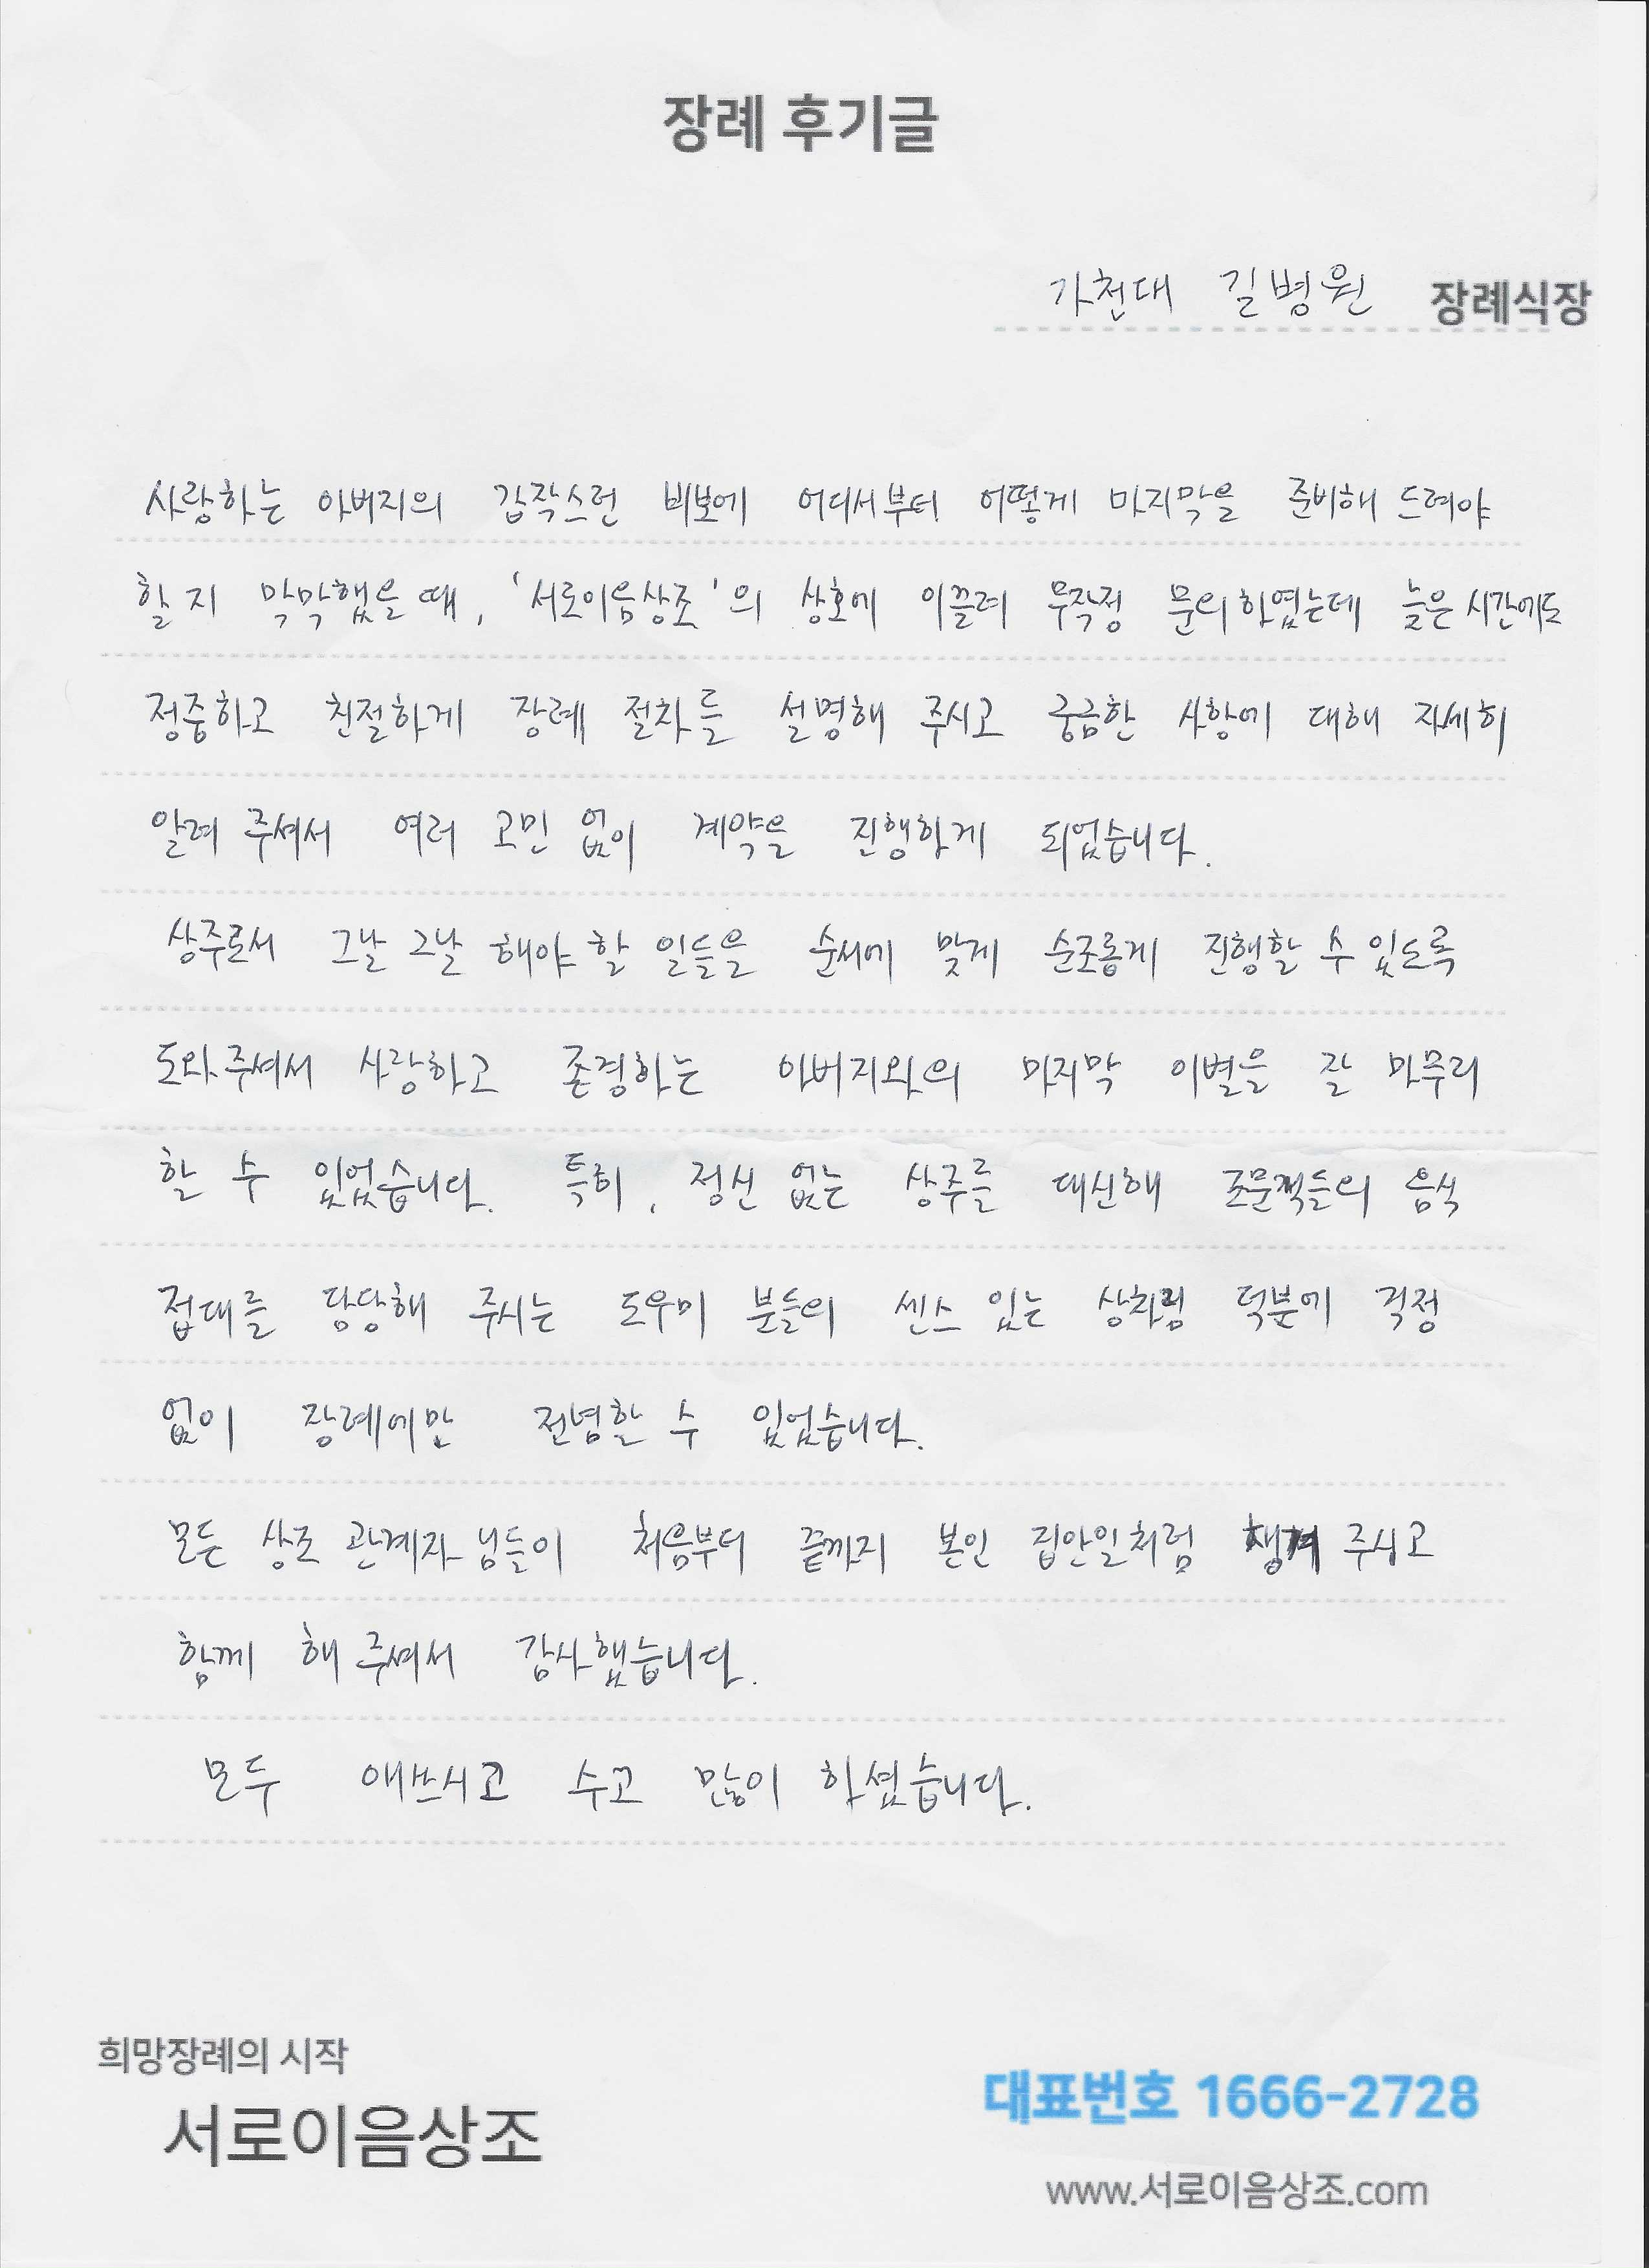 장례 후기글
가천대 길병원 장례식장
사랑하는 아버지의 갑작스런 비보에 어디서부터 어떻게 마지막을 준비해 드려야
할 지 막막했을 때, '서로이음상조'의 상호에 이끌려 무작정 문의하였는데 늦은 시간에도
정중하고 친절하게 장례 절차를 설명해 주시고 궁금한 사항에 대해 자세히
알려 주셔서 여러 고민 없이 계약을 진행하게 되었습니다.
상주로서 그날 그날 해야 할 일들을 순서에 맞게 순조롭게 진행할 수 있도록
도와주셔서 사랑하고 존경하는 아버지와의 마지막 이별을 잘 마무리
할 수 있었습니다. 특히, 정신 없는 상주를 대신해 조문객들의 음식
접대를 담당해 주시는 도우미 분들의 센스 있는 상차림 덕분에 걱정
없이 장례에만 전념할 수 있었습니다.
모든 상조 관계자 님들이 처음부터 끝까지 본인 집안일처럼 챙겨 주시고
함께 해 주셔서 감사했습니다.
모두 애쓰시고 수고 많이 하셨습니다.
희망장례의 시작
서로이음상조
대표번호 1666-2728
www.서로이음상조.com